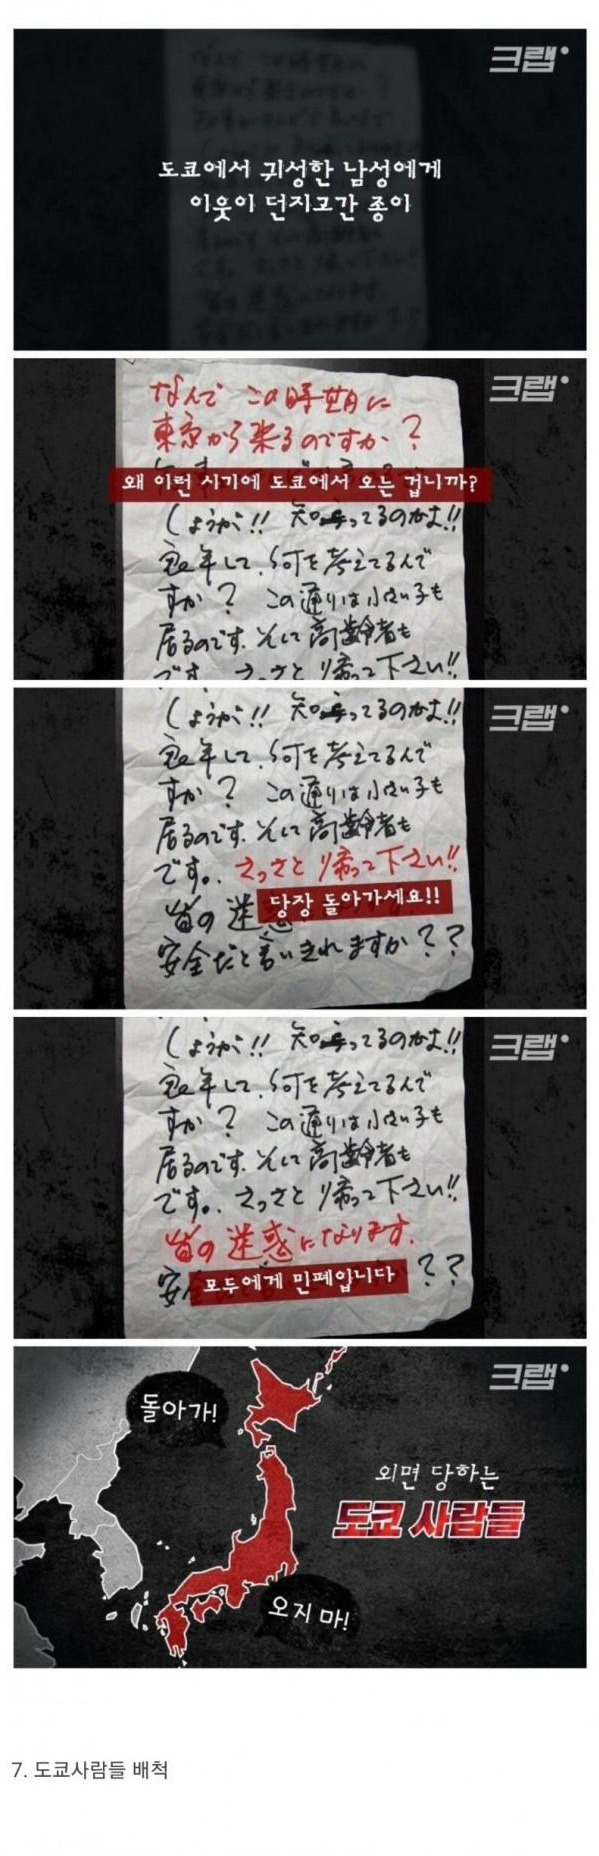 크랩
도쿄에서 귀성한 남성에게
이웃이 던지고간 종이
크랩
なんで この時期に
東京から来るのですか?
왜 이런 시기에 도쿄에서 오는 겁니까?
しょうが!! 知ってるのかよ!!
良い年して、何を考えてるんで
すか? この通りは小さい子も
居るのです。そして高齢者も
です。さっさと帰って下さい!!
크랩
しょうが!! 知ってるのかよ!!
良い年して、何を考えてるんで
すか? この通りは小さい子も
居るのです。そして高齢者も
です。さっさと帰って下さい!!
당장 돌아가세요!!
皆の迷惑
安全だと言いきれますか??
크랩
しょうが!! 知ってるのかよ!!
良い年して、何を考えてるんで
すか? この通りは小さい子も
居るのです。そして高齢者も
です。さっさと帰って下さい!!
皆の迷惑になります。
모두에게 민폐입니다
安 ??
크랩
돌아가!
외면 당하는
도쿄 사람들
오지 마!
7. 도쿄사람들 배척